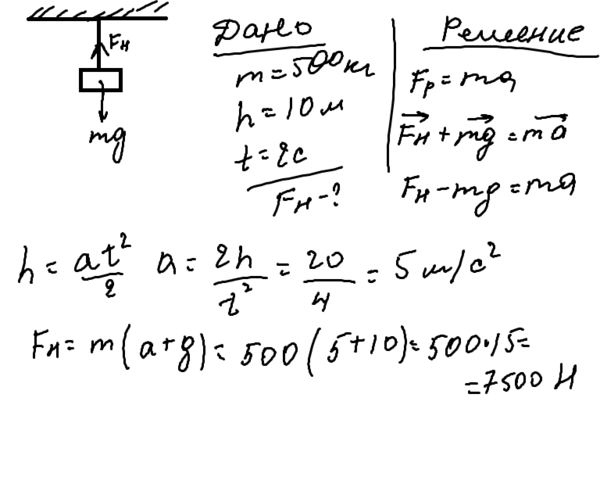 Fн
mg
Дано
m=500кг
h=10м
t=2c
Fн-?
Решение
Fp=ma
Fн+mg=ma
Fн-mg=ma
h=at²/2 a=2h/t²=20/4=5м/c²
Fн=m(a+g)=500(5+10)=500·15=
=7500 Н